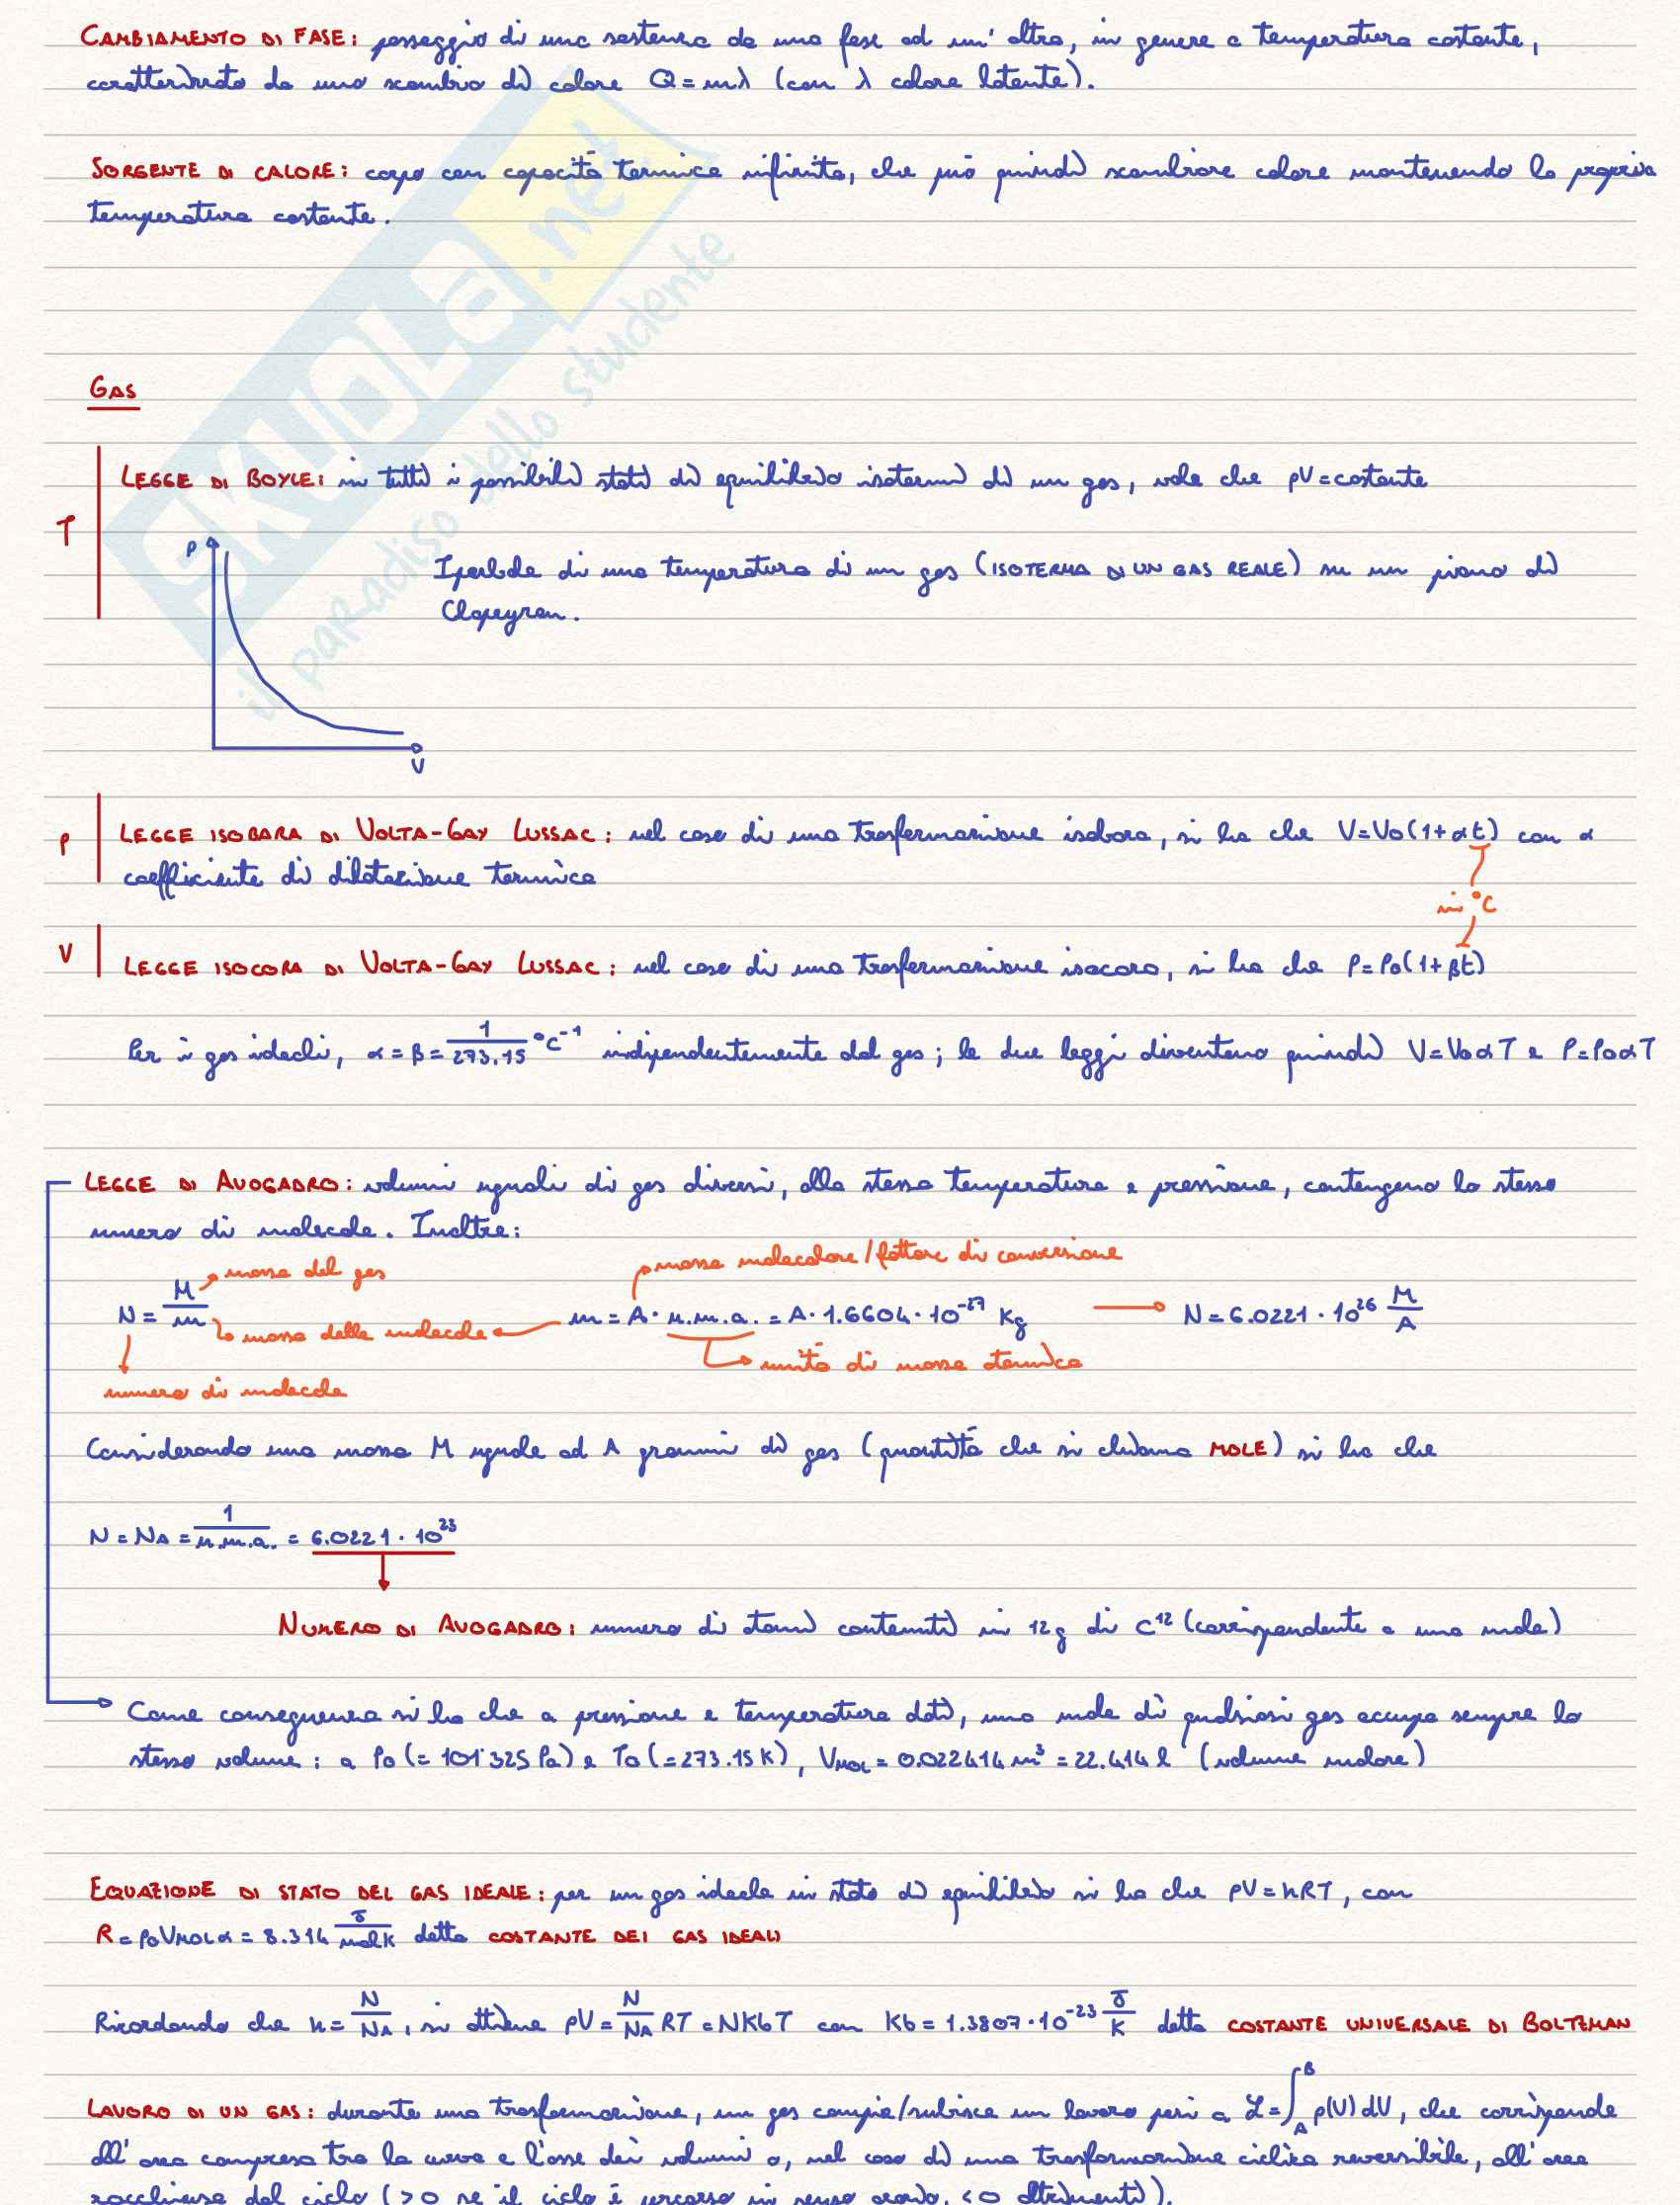 CAMBIAMENTO DI FASE: passaggio di una sostanza da una fase ad un'altra, in genere a temperatura costante,
caratterizzato da uno scambio di calore Q = mλ (con λ calore latente).
SORGENTE DI CALORE: corpo con capacità termica infinita, che può quindi scambiare calore mantenendo la propria
temperatura costante.
SKUOLA.net
il paradiso dello studente
GAS
T
LEGGE DI BOYLE: in tutti i possibili stati di equilibrio isotermi di un gas, vale che pV = costante
p
Iperbole di una temperatura di un gas (ISOTERMA DI UN GAS REALE) su un piano di
Clapeyron.
V
p
LEGGE ISOBARA DI VOLTA-GAY LUSSAC: nel caso di una trasformazione isobara, si ha che V=V0(1+αt) con α
coefficiente di dilatazione termica
in °C
V
LEGGE ISOCORA DI VOLTA-GAY LUSSAC: nel caso di una trasformazione isocora, si ha che P=P0(1+βt)
Per i gas ideali, α = β = 1/273.15 °C⁻¹ indipendentemente dal gas; le due leggi diventano quindi V=V0αT e P=P0αT
LEGGE DI AVOGADRO: volumi uguali di gas diversi, alla stessa temperatura e pressione, contengono lo stesso
numero di molecole. Inoltre:
massa del gas
massa molecolare/fattore di conversione
N = M/m
massa delle molecole
m = A · u.m.a. = A · 1.6604 · 10⁻²⁷ Kg → N = 6.0221 · 10²⁶ M/A
unità di massa atomica
numero di molecole
Considerando una massa M uguale ad A grammi di gas (quantità che si chiama MOLE) si ha che
N = NA = 1/u.m.a. = 6.0221 · 10²³
NUMERO DI AVOGADRO: numero di atomi contenuti in 12g di C¹² (corrispondente a una mole)
Come conseguenza si ha che a pressione e temperatura dati, una mole di qualsiasi gas occupa sempre lo
stesso volume: a P0 (= 101'325 Pa) e T0 (=273.15 K), VMOL = 0.022414 m³ = 22.414 l (volume molare)
EQUAZIONE DI STATO DEL GAS IDEALE: per un gas ideale in stato di equilibrio si ha che pV = nRT, con
R = p0VMOLα = 8.314 J/molK detta COSTANTE DEI GAS IDEALI
Ricordando che n = N/NA, si ottiene pV = N/NA RT = NKbT con Kb = 1.3807 · 10⁻²³ J/K detta COSTANTE UNIVERSALE DI BOLTZMAN
LAVORO DI UN GAS: durante una trasformazione, un gas compie/subisce un lavoro pari a L = ∫_A^B p(V) dV, che corrisponde
all'area compresa tra la curva e l'asse dei volumi o, nel caso di una trasformazione ciclica reversibile, all'area
racchiusa dal ciclo (>0 se il ciclo è percorso in senso orario, <0 altrimenti).